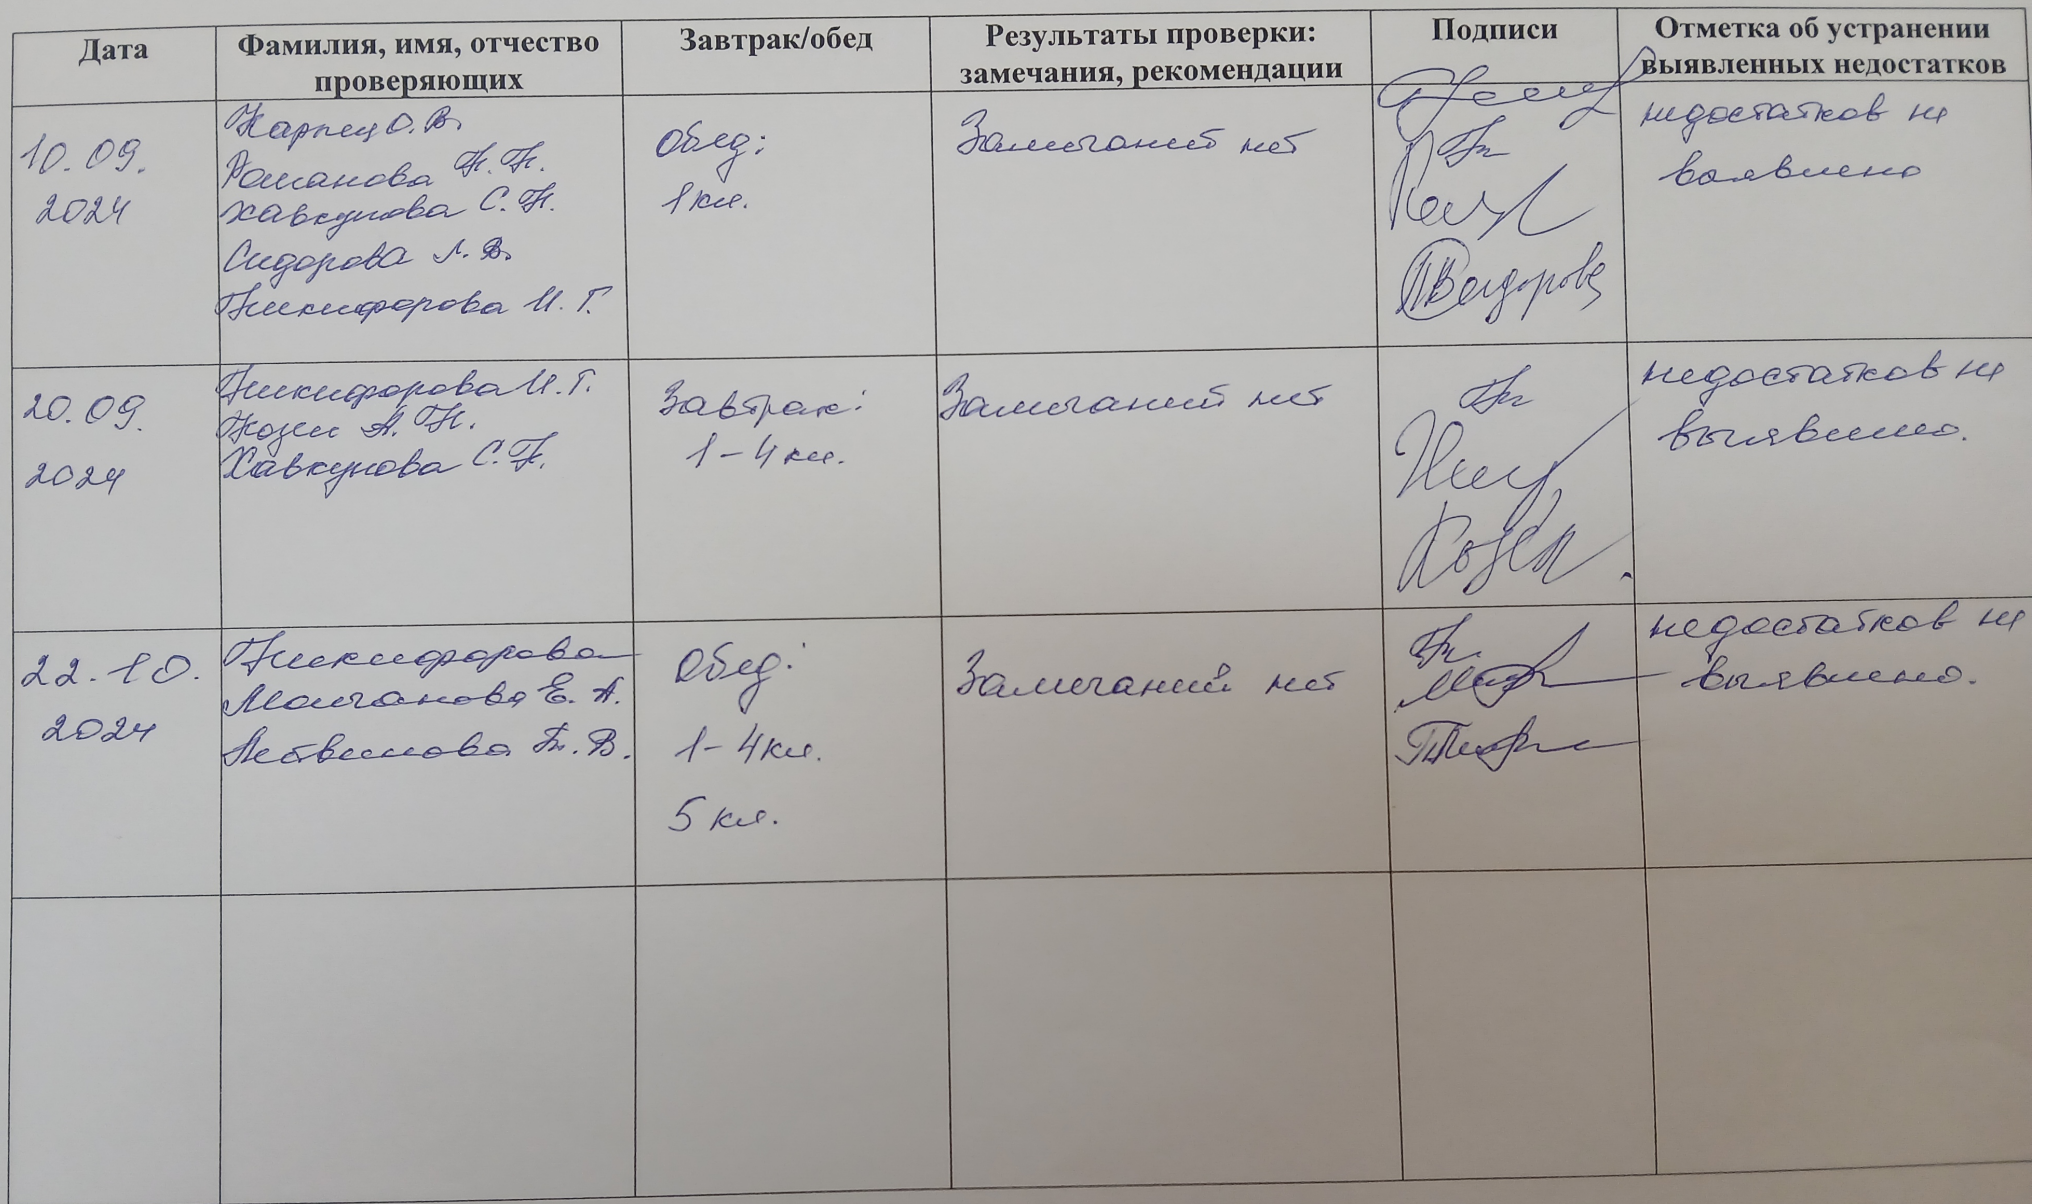 Дата
Фамилия, имя, отчество
проверяющих
Завтрак/обед
Результаты проверки:
замечания, рекомендации
Подписи
Отметка об устранении
выявленных недостатков
10.09.
2024
Карпец О.В.
Романова Н.Н.
Хавкунова С.Н.
Сидорова Л.В.
Никифорова И.Г.
Обед:
1 кл.
Замечаний нет
ЛВСидорова
недостатков не
выявлено
20.09.
2024
Никифорова И.Г.
Козен А.Н.
Хавкунова С.Н.
Завтрак:
1-4 кл.
Замечаний нет
недостатков не
выявлено.
22.10.
2024
Никифорова
Молчанова Е.А.
Литвинова Т.В.
Обед:
1-4 кл.
5 кл.
Замечаний нет
недостатков не
выявлено.